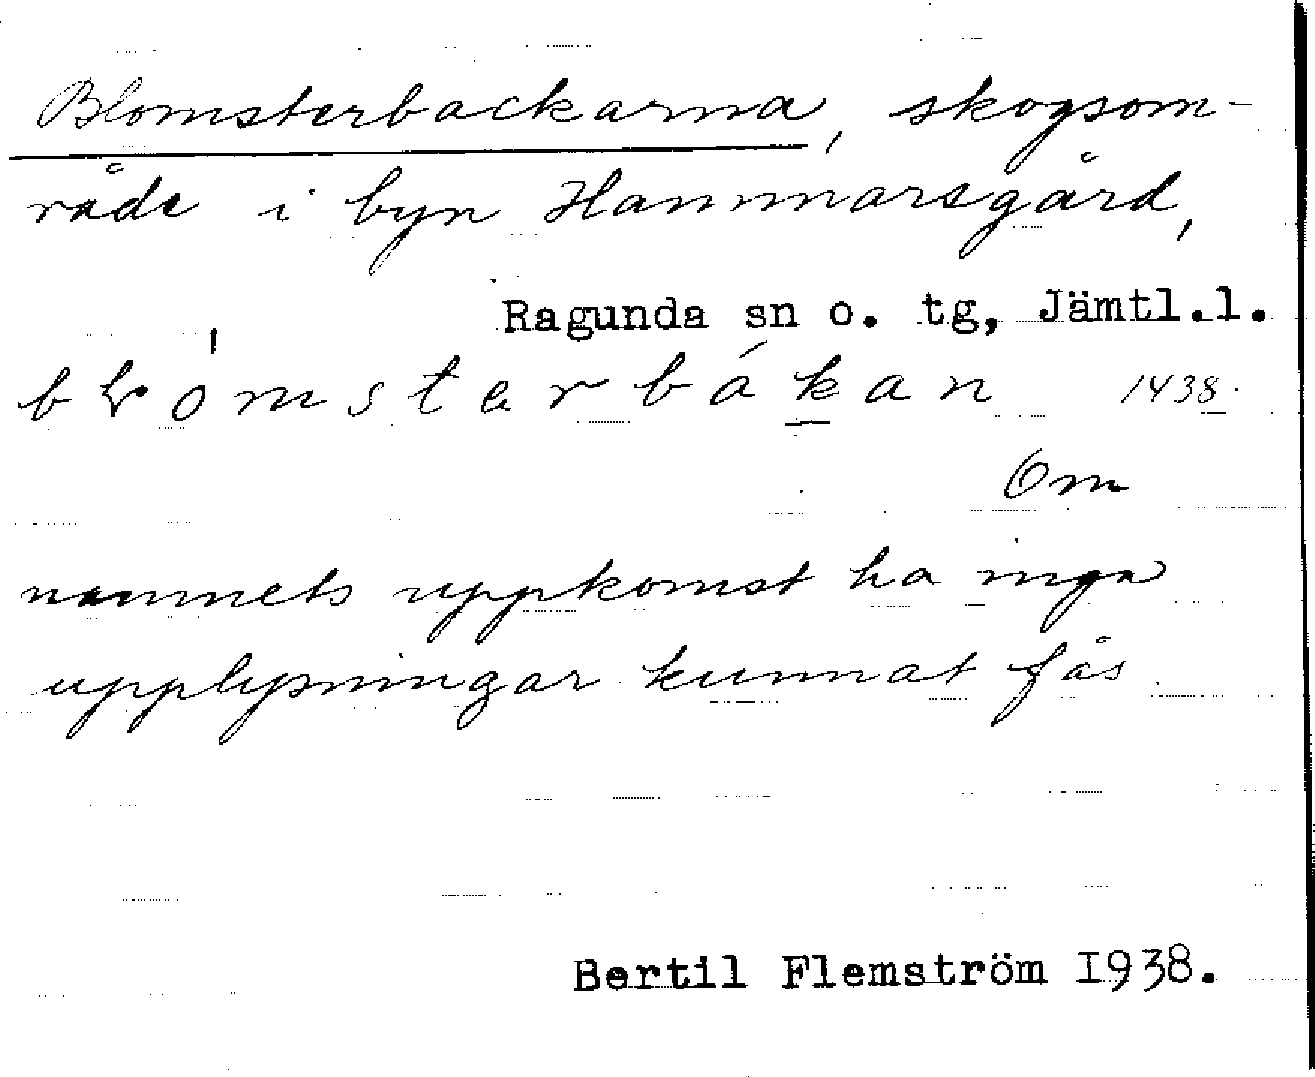 Blomsterbackarna, skogsom-
råde i byn Hammarsgård,
Ragunda sn o. tg, Jämtl.l.
blómsterbákan 1438.
Om
namnets uppkomst ha inga
upplysningar kunnat fås.
Bertil Flemström 1938.